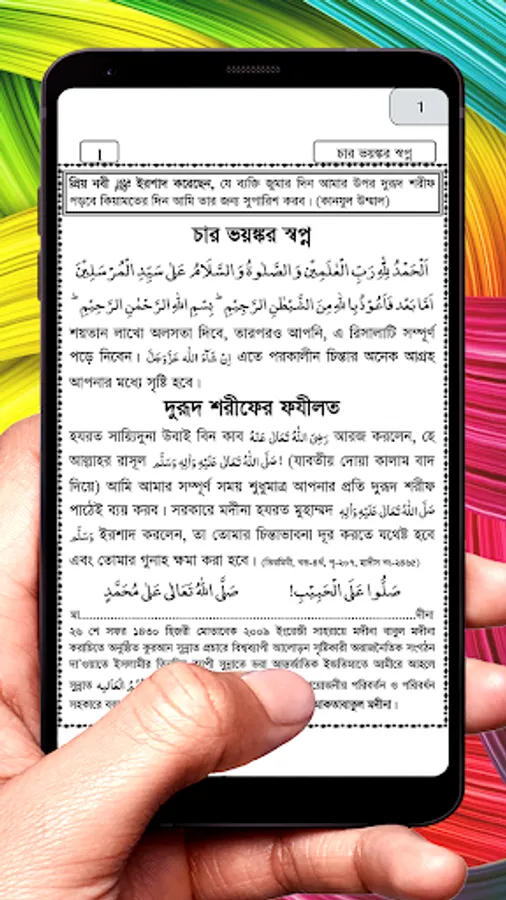 1
1 চার ভয়ঙ্কর স্বপ্ন
প্রিয় নবী ﷺ ইরশাদ করেছেন, যে ব্যক্তি জুমার দিন আমার উপর দুরূদ শরীফ
পড়বে কিয়ামতের দিন আমি তার জন্য সুপারিশ করব। (কানযুল উম্মাল)
চার ভয়ঙ্কর স্বপ্ন
اَلْحَمْدُ لِلّٰهِ رَبِّ الْعٰلَمِيْنَ وَالصَّلٰوةُ وَالسَّلَامُ عَلٰى سَيِّدِ الْمُرْسَلِيْنَ
اَمَّا بَعْدُ فَاَعُوْذُ بِاللّٰهِ مِنَ الشَّيْطٰنِ الرَّجِيْمِ ؕ بِسْمِ اللّٰهِ الرَّحْمٰنِ الرَّحِيْمِ ؕ
শয়তান লাখো অলসতা দিবে, তারপরও আপনি, এ রিসালাটি সম্পূর্ণ
পড়ে নিবেন। اِنْ شَآءَ اللّٰه عَزَّوَجَلَّ এতে পরকালীন চিন্তার অনেক আগ্রহ
আপনার মধ্যে সৃষ্টি হবে।
দুরূদ শরীফের ফযীলত
হযরত সায়্যিদুনা উবাই বিন কাব رَضِىَ اللّٰهُ تَعَالٰى عَنْهُ আরজ করলেন, হে
আল্লাহর রাসূল صَلَّى اللّٰهُ تَعَالٰى عَلَيْهِ وَاٰلِهٖ وَسَلَّم! (যাবতীয় দোয়া কালাম বাদ
দিয়ে) আমি আমার সম্পূর্ণ সময় শুধুমাত্র আপনার প্রতি দুরূদ শরীফ
পাঠেই ব্যয় করব। সরকারে মদীনা হযরত মুহাম্মদ صَلَّى اللّٰهُ تَعَالٰى عَلَيْهِ وَاٰلِهٖ
وَسَلَّم ইরশাদ করলেন, তা তোমার চিন্তাভাবনা দূর করতে যথেষ্ট হবে
এবং তোমার গুনাহ ক্ষমা করা হবে। (তিরমিযী, খন্ড-৪র্থ, পৃ-২০৭, হাদীস নং-২৪৬৫)
صَلُّوْا عَلَى الْحَبِيْبِ! صَلَّى اللّٰهُ تَعَالٰى عَلٰى مُحَمَّدٍ
মা দীনা
২৬ শে সফর ১৪৩০ হিজরী মোতাবেক ২০০৯ ইংরেজী সাহরায়ে মদীনা বাবুল মদীনা
করাচিতে অনুষ্ঠিত কুরআন সুন্নাত প্রচারে বিশ্বব্যাপী আলোড়ন সৃষ্টিকারী অরাজনৈতিক সংগঠন
দা'ওয়াতে ইসলামীর সুন্নাতে ভরা আন্তর্জাতিক ইজতিমাতে আমীরে আহলে
সুন্নাত পরিবর্তন ও পরিবর্ধন
সহকারে মদীনা।